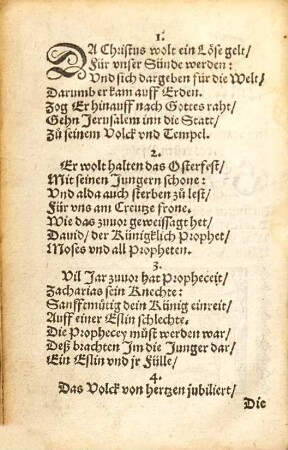 1.
DA Christus wolt ein Löse gelt/
Für vnser Sünde werden:
Vnd sich dargeben für die Welt/
Darumb er kam auff Erden.
Zog Er hinauff nach Gottes raht/
Gehn Jerusalem inn die Statt/
Zů seinem Volck vnd Tempel.
2.
Er wolt halten das Osterfest/
Mit seinen Jungern schone:
Vnd alda auch sterben zů lest/
Für vns am Creutze frone.
Wie das zuuor geweissagt het/
Dauid/ der Künigklich Prophet/
Moses vnd all Propheten.
3.
Vil Jar zuuor hat Propheceit/
Zacharias sein Knechte:
Sanfftmůtig dein Künig einreit/
Auff einer Eslin schlechte.
Die Prophecey můst werden war/
Deß brachten Jm die Junger dar/
Ein Eslin vnd jr Fülle/
4.
Das Volck von hertzen jubiliert/
Die